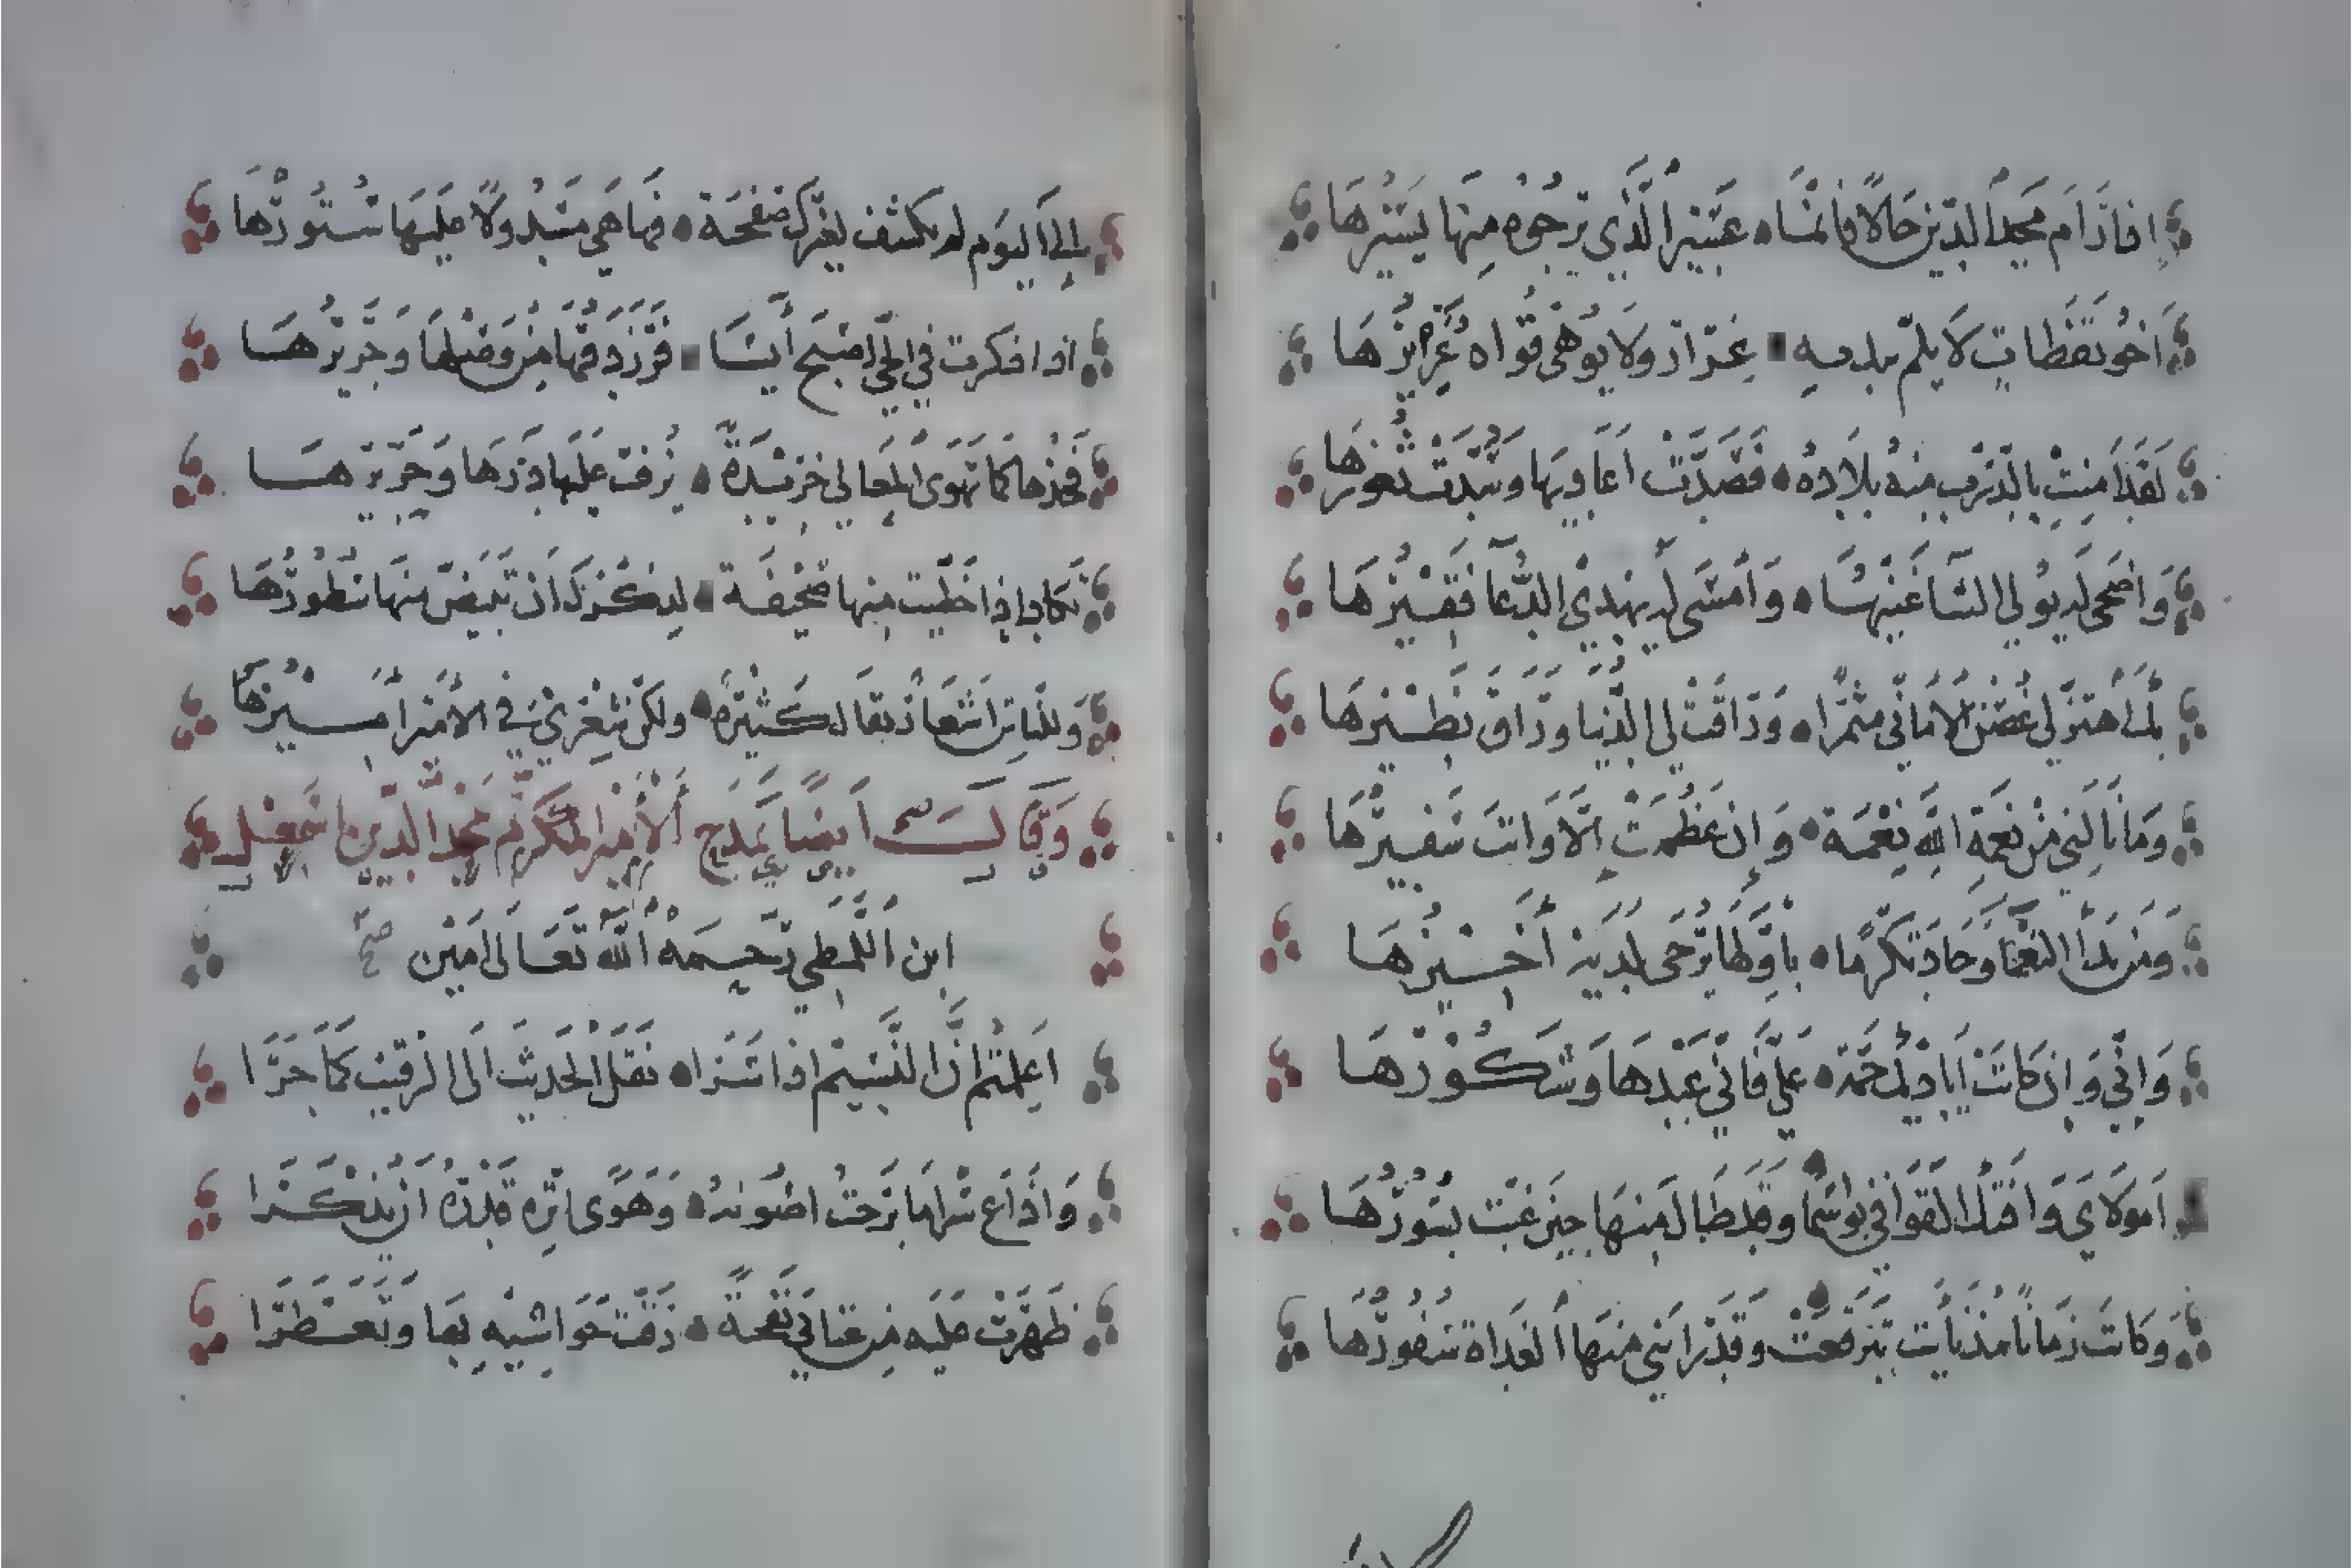 اذا رام مجد الدين حالا فانما عسير الذي يرجوه منها يسيرها
اخو يقظات لا يلم بطرفه غرار ولا يوهي قواه غريرها
لقد امنت بالرعب منه بلاده فصدت اعاديها وسدت ثغورها
واضحى له يولي الثنا غنيها وامسى له يهدي الدعا فقيرها
بك اهتز لي غصن الاماني مثمرا وراقت لي الدنيا وراق نضيرها
وما نالني من نعمة الله نعمة وان عظمت الا وانت سفيرها
ومن بدا النعما وجاد تكرما باولها يرجى لديه اخيرها
واني وان كانت اياديك جمة علي فاني عبدها وشكورها
امولاي وافتك القوافي بواسما وقد طال منها حين غبت بسورها
وكانت زمانا مذ نايت تبرقعت وقد رابني منها الغداة سفورها
الى اليوم لم تكشف لغيرك صفحة فها هي مسدولا عليها ستورها
اذا فكرت في الحي اصبح آيسا فرزدقها من وصلها وجريرها
فخذها كما تهوى المعالي خريدة يزف عليها درها وحريرها
تكاد اذا خطيت منها صحيفة لذكرك ان تبيض منها سطورها
وللناس اشعار تقال كثيرة ولكن شعري في الامير اميرها
وقال ايضا يمدح الامير المكرم مجد الدين اسمعيل
ابن اللمطي رحمه الله تعالى امين صح
اعلمتم ان النسيم اذا سرا نقل الحديث الى الرقيب كما جرا
واذاع سرا ما برحت اصونه وهوى انزه قدره ان يذكرا
ظهرت عليه من عتابي نفحة رقت حواشيه بها وتعطرا